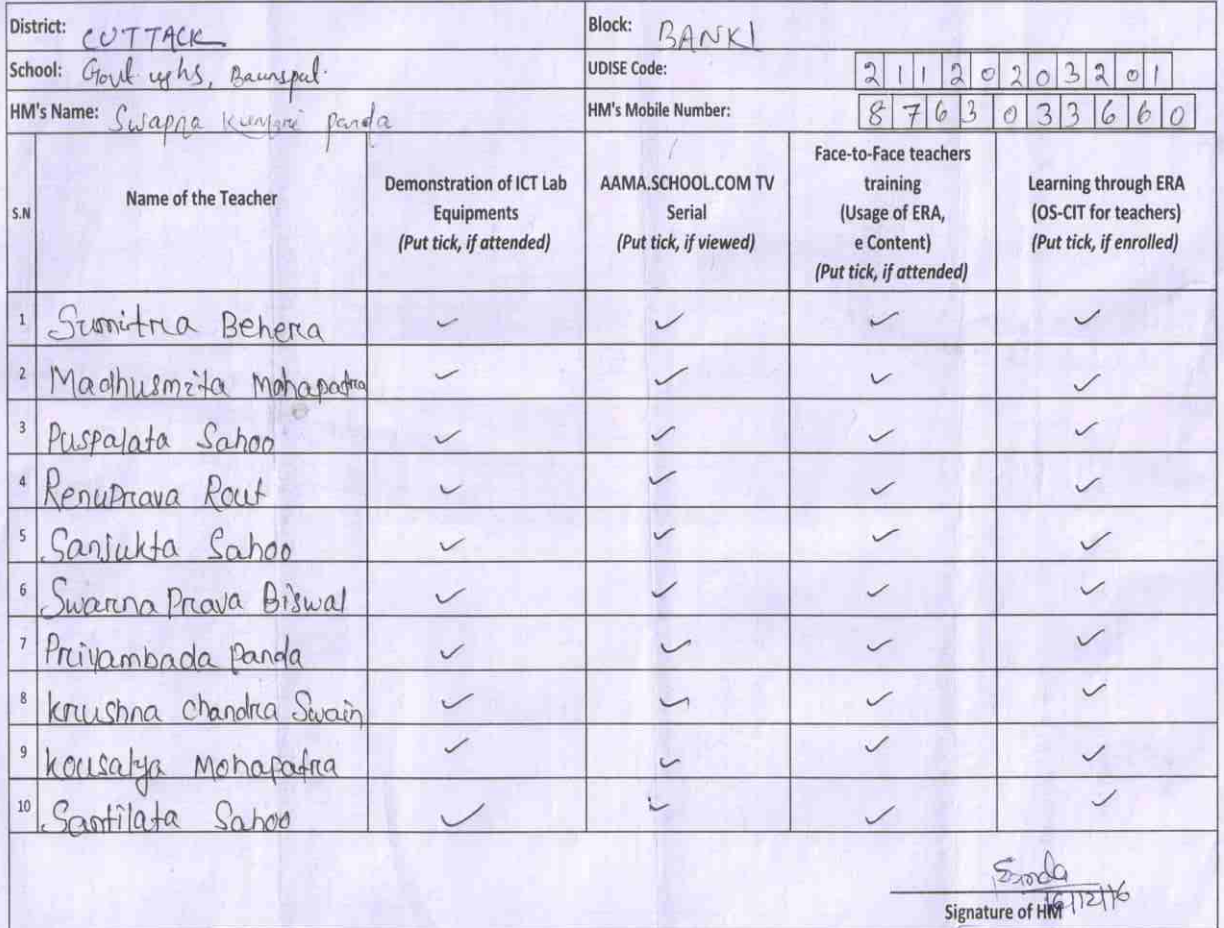 District: CUTTACK Block: BANKI
School: Govt. ughs, Baunspal. UDISE Code: 2 1 1 2 0 2 0 3 2 0 1
HM's Name: Swapna Kumari panda HM's Mobile Number: 8 7 6 3 0 3 3 6 6 0
S.N
Name of the Teacher
Demonstration of ICT Lab
Equipments
(Put tick, if attended)
AAMA.SCHOOL.COM TV
Serial
(Put tick, if viewed)
Face-to-Face teachers
training
(Usage of ERA,
e Content)
(Put tick, if attended)
Learning through ERA
(OS-CIT for teachers)
(Put tick, if enrolled)
1 Sumitra Behera ✓ ✓ ✓ ✓
2 Madhusmita Mohapatra ✓ ✓ ✓ ✓
3 Puspalata Sahoo ✓ ✓ ✓ ✓
4 RenuPrava Rout ✓ ✓ ✓ ✓
5 Sanjukta Sahoo ✓ ✓ ✓ ✓
6 Swarna Prava Biswal ✓ ✓ ✓ ✓
7 Priyambada Panda ✓ ✓ ✓ ✓
8 krushna chandra Swain ✓ ✓ ✓ ✓
9 kousalya Mohapatra ✓ ✓ ✓ ✓
10 Santilata Sahoo ✓ ✓ ✓ ✓
16/12/16
Signature of HM